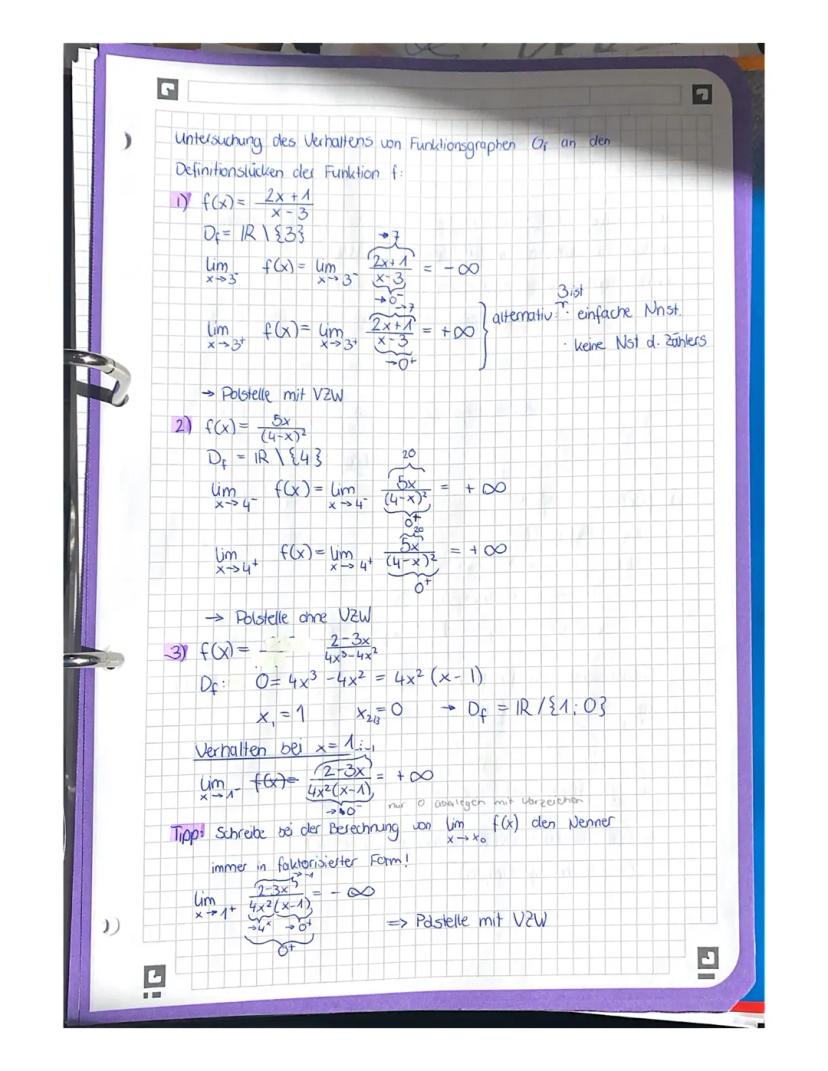 Untersuchung des Verhaltens von Funktionsgraphen Gf an den
Definitionslücken der Funktion f:
1) f(x) = (2x+1)/(x-3)
Df = ℝ \ {3}
lim x→3⁻ f(x) = lim x→3⁻ (2x+1)/(x-3) = -∞
→7
→0⁻
lim x→3⁺ f(x) = lim x→3⁺ (2x+1)/(x-3) = +∞
→7
→0⁺
alternativ: 3 ist
· einfache Nnst.
· keine Nst d. Zählers
→ Polstelle mit VZW
2) f(x) = 5x/(4-x)²
Df = ℝ \ {4}
lim x→4⁻ f(x) = lim x→4⁻ 5x/(4-x)² = +∞
20
0⁺
lim x→4⁺ f(x) = lim x→4⁺ 5x/(4-x)² = +∞
20
0⁺
→ Polstelle ohne VZW
3) f(x) = (2-3x)/(4x³-4x²)
Df: 0 = 4x³ - 4x² = 4x² (x-1)
x₁ = 1 x₂/₃ = 0 → Df = ℝ / {1; 0}
Verhalten bei x = 1:
lim x→1⁻ f(x) = (2-3x)/(4x²(x-1)) = +∞
→-1
→0⁻
nur 0 überlegen mit Vorzeichen
Tipp: Schreibe bei der Berechnung von lim x→x₀ f(x) den Nenner
immer in faktorisierter Form!
lim x→1⁺ (2-3x)/(4x²(x-1)) = -∞
→-1
→4⁺ →0⁺
0⁺
⇒ Polstelle mit VZW